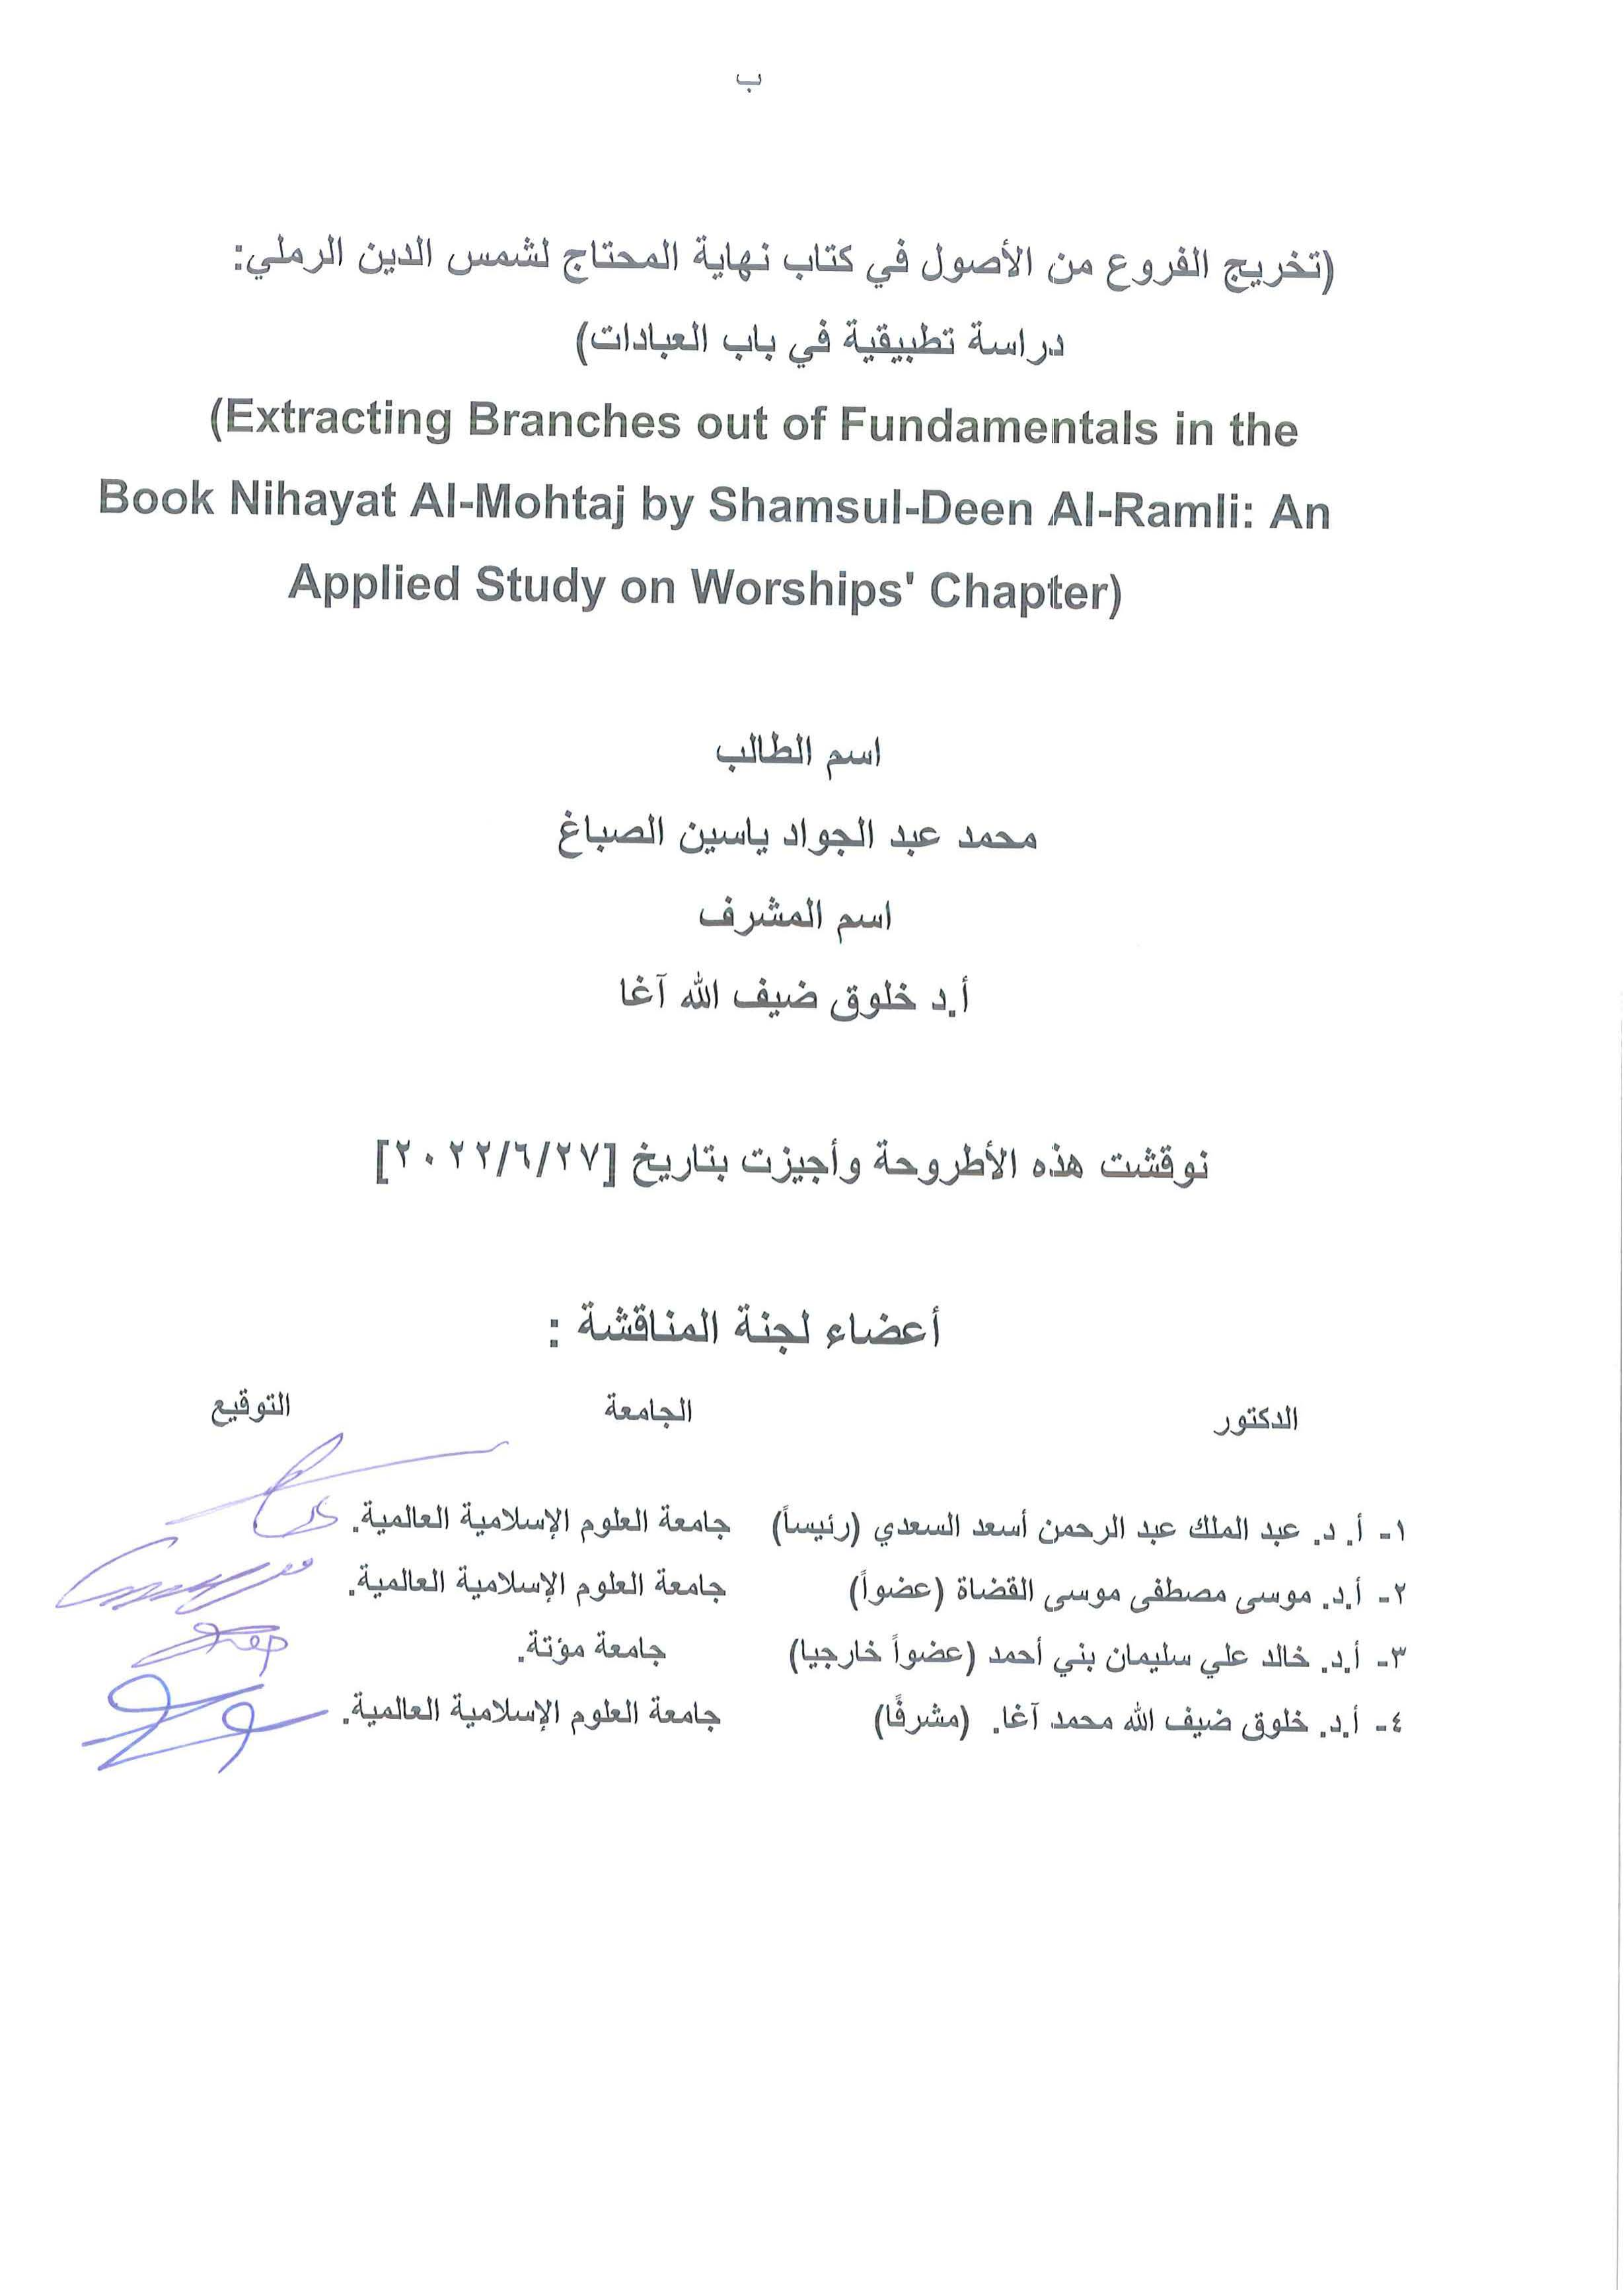 ب
(تخريج الفروع من الأصول في كتاب نهاية المحتاج لشمس الدين الرملي:
دراسة تطبيقية في باب العبادات)
(Extracting Branches out of Fundamentals in the
Book Nihayat Al-Mohtaj by Shamsul-Deen Al-Ramli: An
Applied Study on Worships' Chapter)
اسم الطالب
محمد عبد الجواد ياسين الصباغ
اسم المشرف
أ.د خلوق ضيف الله آغا
نوقشت هذه الأطروحة وأجيزت بتاريخ [٢٠٢٢/٦/٢٧]
أعضاء لجنة المناقشة :
الدكتور الجامعة التوقيع
١- أ. د. عبد الملك عبد الرحمن أسعد السعدي (رئيساً) جامعة العلوم الإسلامية العالمية.
٢- أ.د. موسى مصطفى موسى القضاة (عضواً) جامعة العلوم الإسلامية العالمية.
٣- أ.د. خالد علي سليمان بني أحمد (عضواً خارجيا) جامعة مؤتة.
٤- أ.د. خلوق ضيف الله محمد آغا. (مشرفًا) جامعة العلوم الإسلامية العالمية.